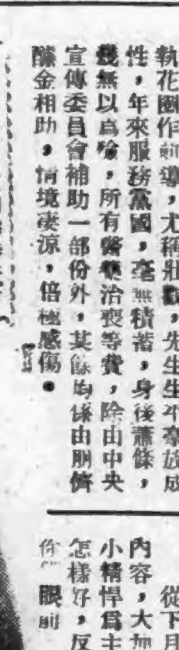 執花圈作前導，尤稱壯觀，先生生平豪放成
性，年來服務黨國，毫無積蓄，身後蕭條，
幾無以爲殮，所有醫藥治喪等費，除由中央
宣傳委員會補助一部份外，其餘均係由朋儕
醵金相助，情境凄涼，倍極感傷。
從下月
內容，大加
小精悍爲主
怎樣好，反
你 眼前